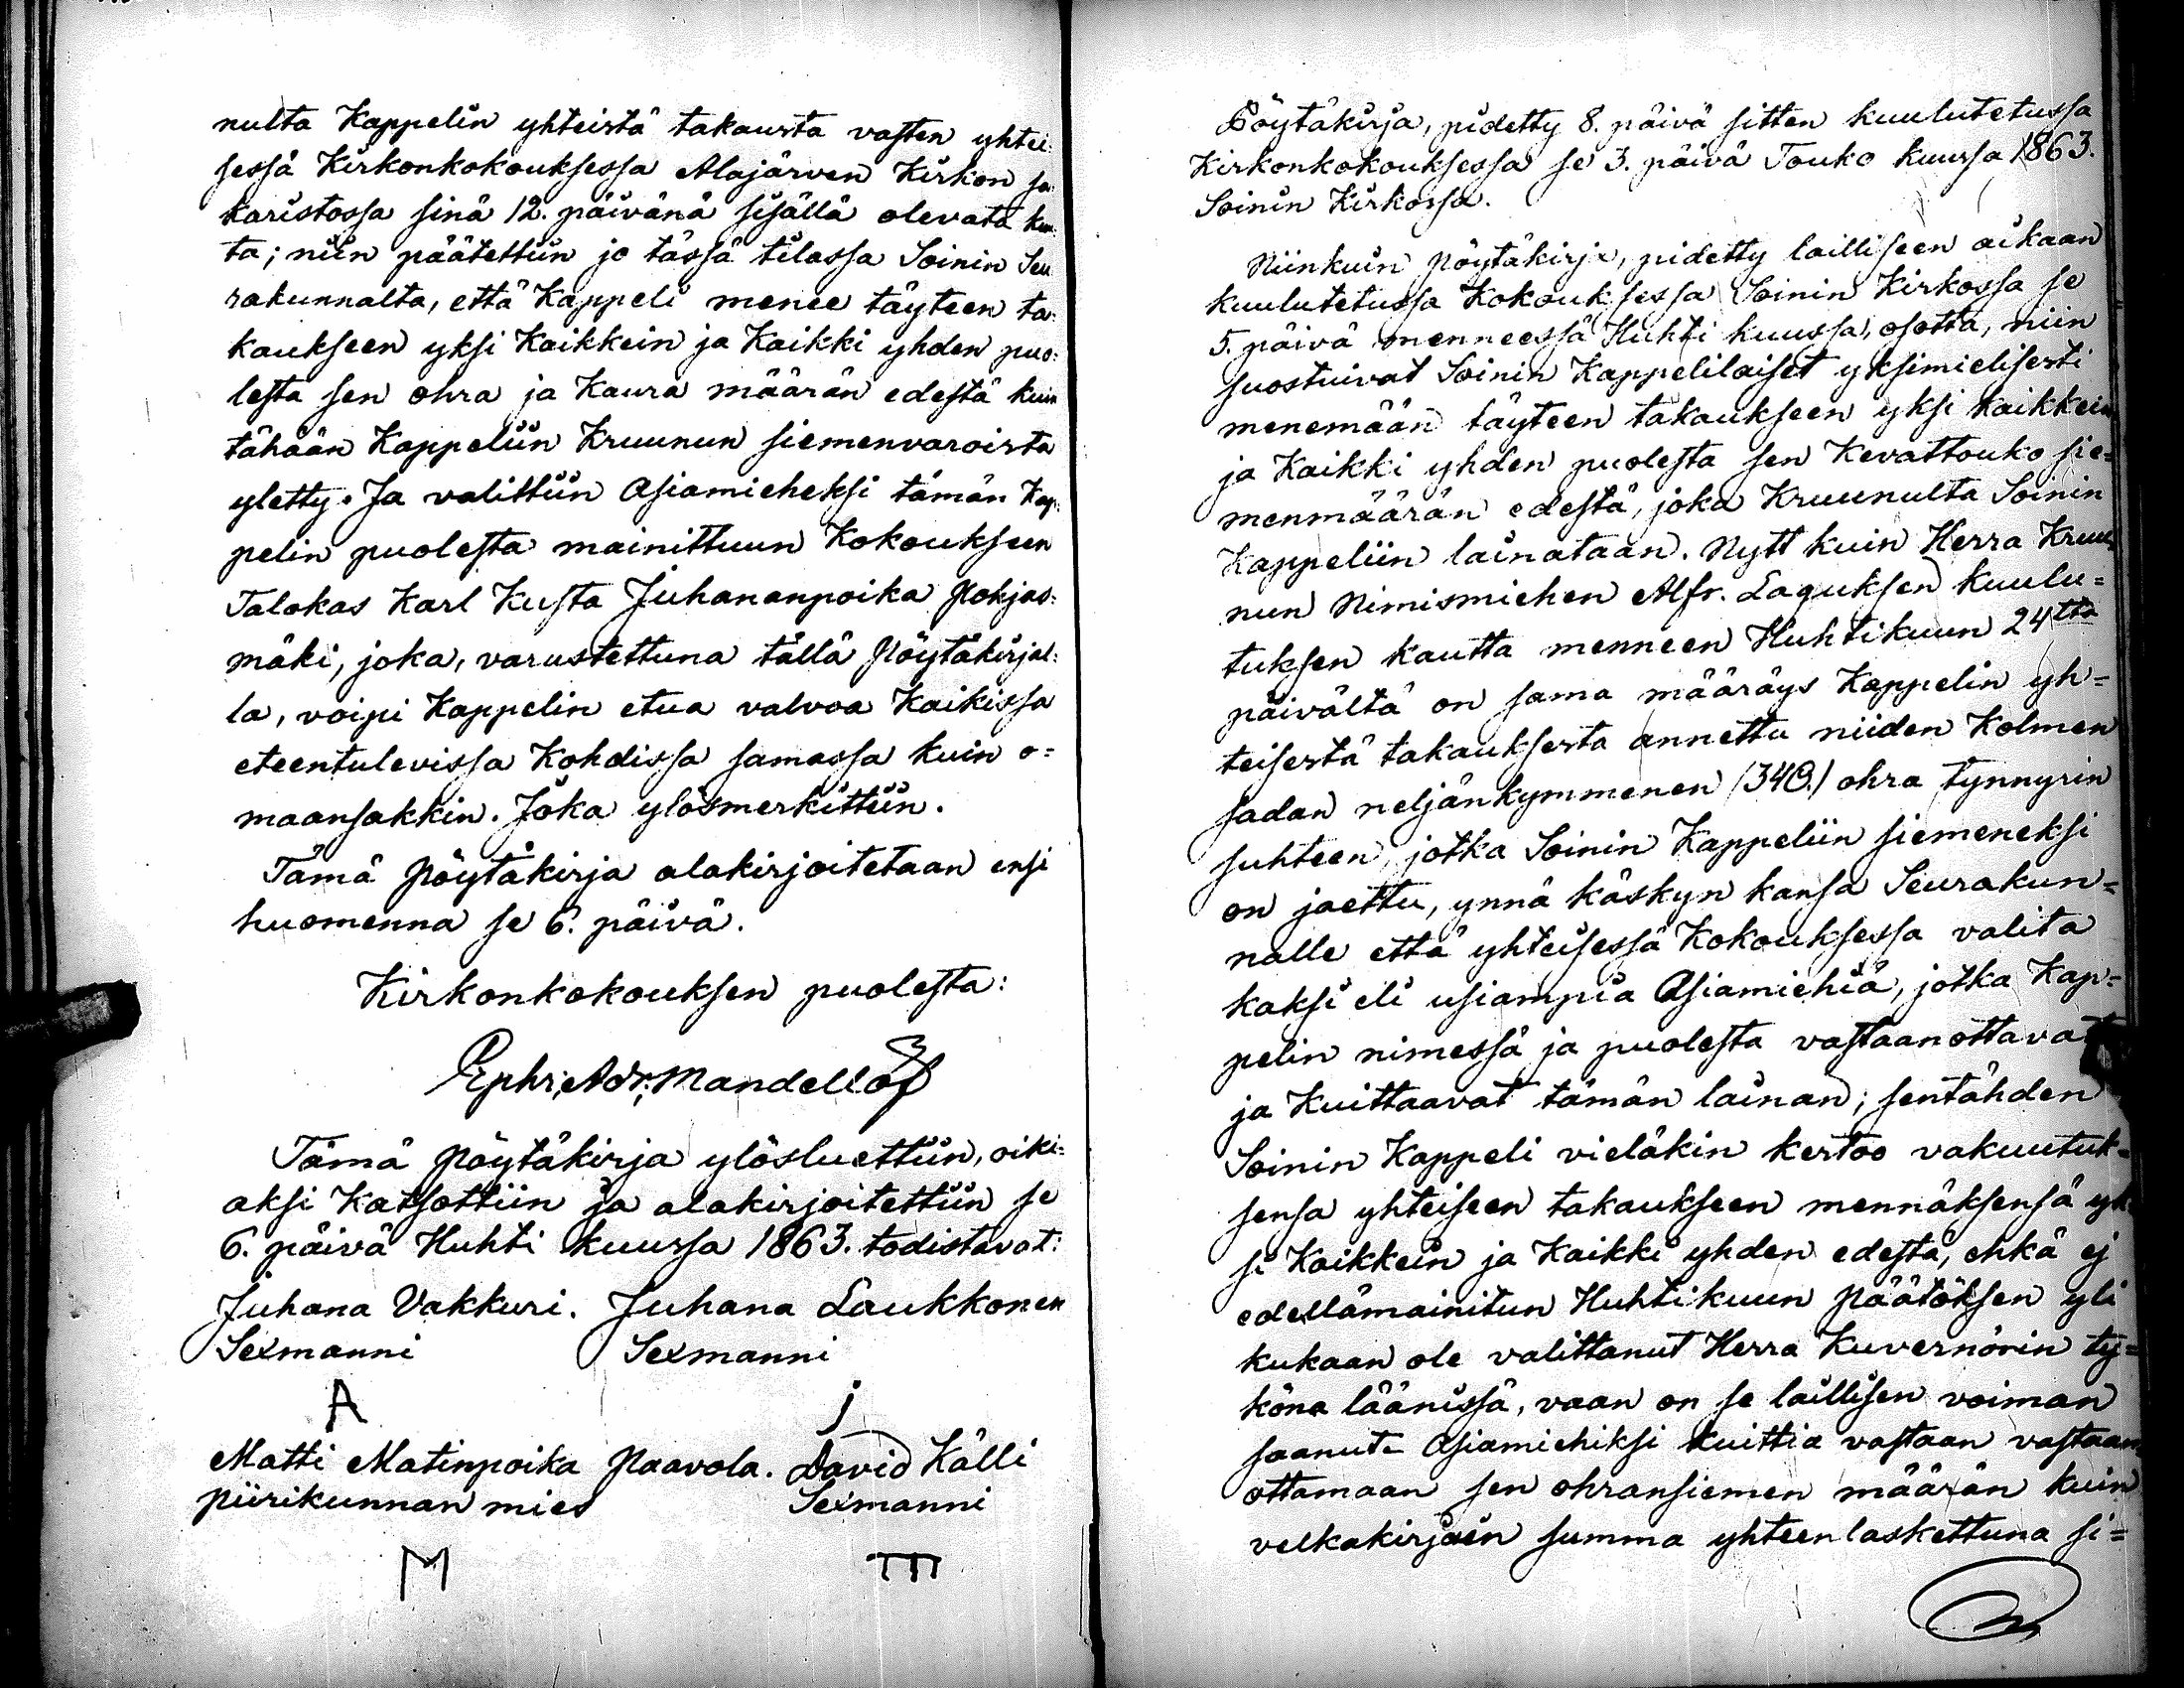 nulta Kappelin yhteistä takausta vasten yhtei:
sessä Kirkonkokouksessa Alajärven Kirkon sa:
karistossa sinä 12. päivänä sisällä olevata kuu:
ta; niin päätettiin jo tässä tilassa Soinin Seu
rakunnalta, että Kappeli menee täyteen ta:
kaukseen yksi Kaikkein ja Kaikki yhden puo:
lesta sen ohra ja Kaura määrän edestä kuin
tähään Kappeliin Kruunun siemenvaroista
yletty. Ja valittiin Asiamieheksi tämän Kap:
pelin puolesta mainittuun Kokoukseen
Talokas Karl Kusta Juhananpoika Pohjas:
mäki, joka, varustettuna tällä Pöytäkirjal:
la, voipi Kappelin etua valvoa Kaikissa
eteentulevissa Kohdissa samassa kuin o=
maansakkin. Joka ylösmerkittiin.
Tämä Pöytäkirja alakirjoitetaan ensi
huomenna se 6. päivä.
Kirkonkokouksen puolesta:
Ephr. Adr. Mandellöf
Tämä Pöytäkirja ylösluettiin, oiki:
aksi Katsottiin ja alakirjoitettiin se
6. päivä Huhti kuussa 1863. todistavat:
Juhana Vakkuri. Juhana Laukkonen
Sexmanni Sexmanni
A J
Matti Matinpoika Paavola. David Källi
piirikunnan mies Sexmanni
M
Pöytäkirja, pidetty 8. päivä sitten kuulutetussa
Kirkonkokouksessa se 3. päivä Touko kuussa 1863.
Soinin Kirkossa.
Niinkuin Pöytäkirja, pidetty lailliseen aikaan
kuulutetussa Kokouksessa Soinin Kirkossa se
5. päivä menneessä Huhti kuussa, osotta, niin
suostuivat Soinin Kappelilaiset yksimielisesti
menemään täyteen takaukseen yksi kaikkein
ja Kaikki yhden puolesta sen Kevattouko sie=
menmäärän edestä, joka Kruunulta Soinin
Kappeliin lainataan. Nytt kuin Herra Kruu=
nun Nimismiehen Alfr. Laguksen kuulu=
tuksen kautta menneen Huhtikuun 24tta
päivältä on sama määräys Kappelin yh=
teisestä takauksesta annettu niiden Kolmen
sadan neljänkymmenen /340./ ohra tynnyrin
suhteen, jotka Soinin Kappeliin siemeneksi
on jaettu, ynnä käskyn kansa Seurakun=
nalle että yhteisessä Kokouksessa valita
kaksi eli usiampia Asiamiehiä, jotka Kap=
pelin nimessä ja puolesta vastaanottavat
ja Kuittaavat tämän lainan; sentähden
Soinin Kappeli vieläkin kertoo vakuutuk=
sensa yhteiseen takaukseen mennäksensä yk=
si Kaikkein ja Kaikki yhden edestä, ehkä ej
edellämainitun Huhtikuun Päätöksen yli
kukaan ole valittanut Herra Kuvernörin ty=
köna läänissä, vaan on se laillisen voiman
saanut. Asiamiehiksi kuittia vastaan vastaan
ottamaan sen ohransiemen määrän kuin
velkakirjain summa yhteenlaskettuna si=